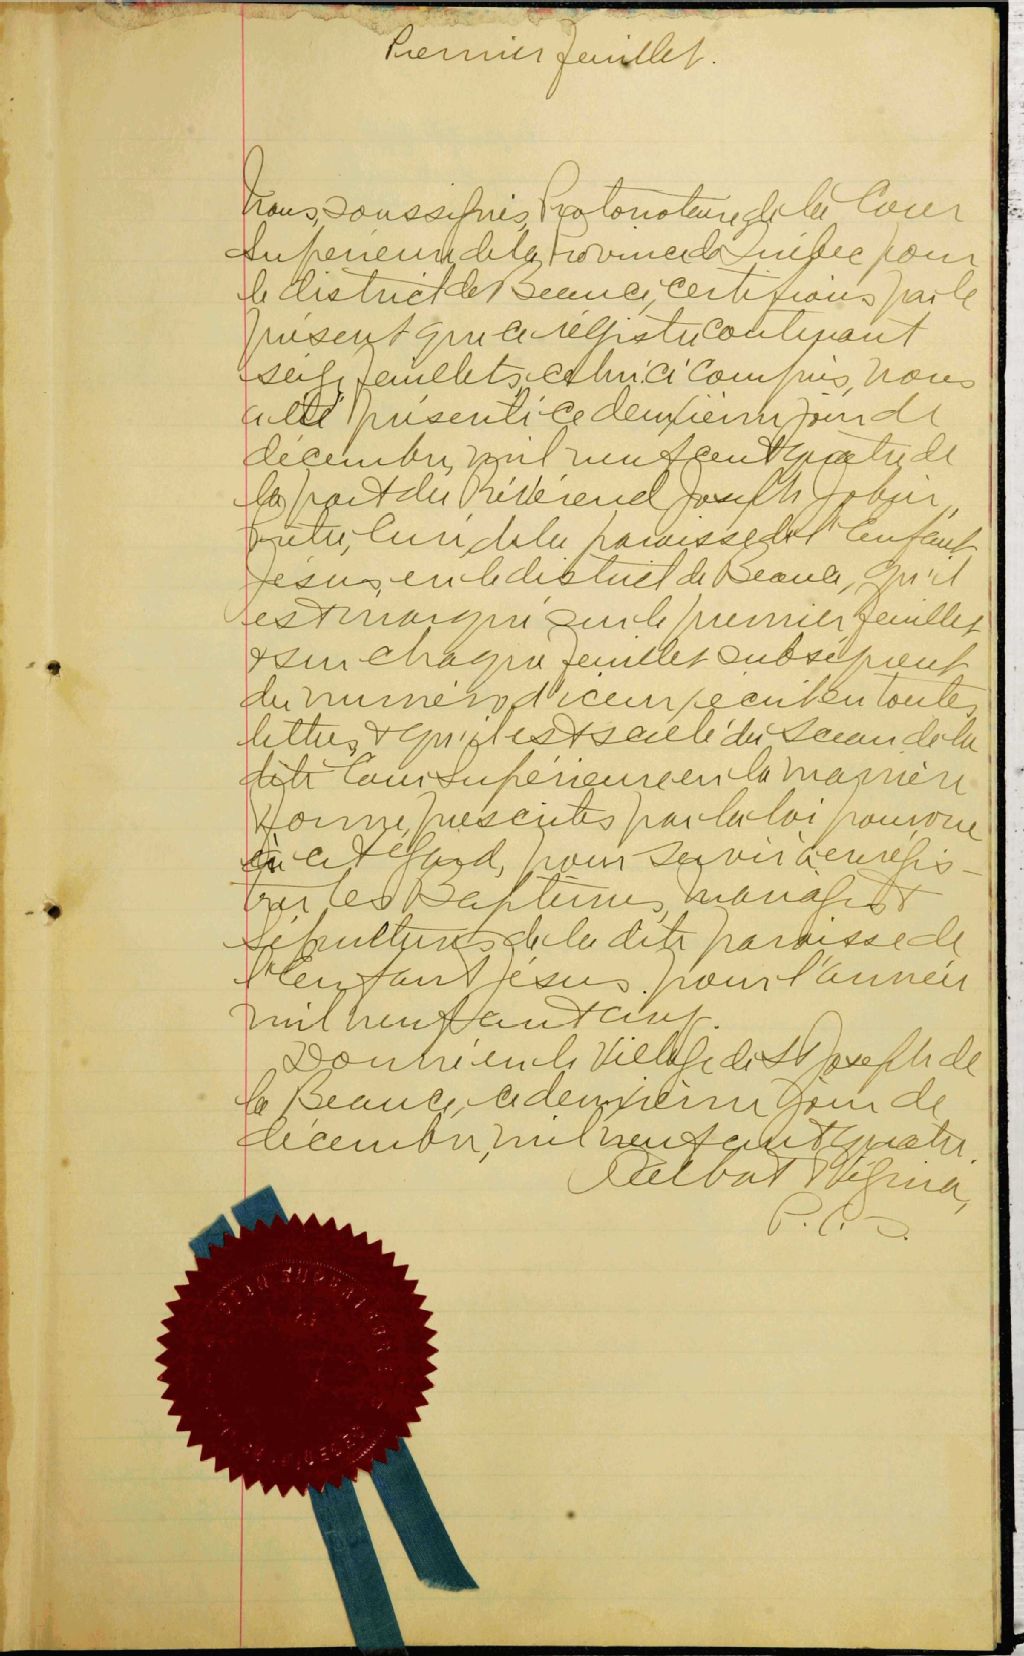 Premier feuillet.
Nous, soussigné, Protonotaire de la Cour
Supérieure de la Province de Québec pour
le district de Beauce, certifions par le
présent que ce régistre contenant
seize feuillets, celui-ci compris, nous
a été présenté ce deuxième jour de
décembre, mil neuf cent quatre de
la part du Révérend Joseph Jobin,
Prêtre, Curé de la paroisse de l'Enfant
Jésus, en le district de Beauce, qu'il
est marqué sur le premier feuillet
& sur chaque feuillet subséquent
du numéro d'iceux écrit en toutes
lettres, & qu'il est scellé du sceau de la
dite Cour Supérieure en la manière
& forme prescrites par la loi pourvue
à cet égard, pour servir à enregis-
trer les Baptêmes, Mariages &
Sépultures de la dite paroisse de
l'Enfant Jésus pour l'année
mil neuf cent cinq.
Donné en le Village de St Joseph de
la Beauce, ce deuxième jour de
décembre, mil neuf cent quatre.
Talbot
P. C. S.
COUR SUPERIEURE